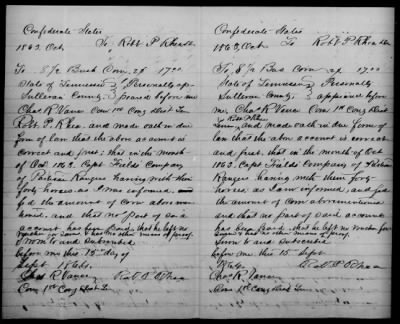 Confederate States
1863. Oct. To, Robt P. Rhea Dr.
To 8 1/2 Bush Corn, 2f 17.00
State of Tennessee } Personally ap-
Sullivan County } peared before me
Chas R. Vance Com 1st Cong Dist Tn
Robt P. Rhea. and made oath in due
form of law that the above account is
correct and just, that in the month
of Oct. 1863. Capt Fields Company
of Partisan Rangers having with their
forty horses, as I was informed,
fed the amount of Corn above men-
tioned, and that no part of said
account has been paid, that he left no
voucher or some & has no other means of proof.
Sworn to and subscribed
before me this 15th day of
Sept. 1864.
Chas R. Vance Robt. P. Rhea
Com 1st Cong Dist Tn
Confederate States
1863, Oct To Robt P. Rhea Dr
To 8 1/2 Bus Corn, 2f 17.00
State of Tennessee } Personally
Sullivan County. } appeared before
me, Chas R. Vance Com. 1st Cong Dist
Robt P Rhea
and made oath in due form of
law that the above account is correct
and just. that in the month of Oct
1863. Capt Fields Company of Partisan
Rangers having with them forty
horses, as I am informed, and fed
the amount of corn abovementioned
and that no part of said account
has been paid, that he left no voucher for
same & has no other means of proof.
Sworn to and subscribed
before me this 15 Sept.
1864. Robt P Rhea
Chas R. Vance
Com 1st Cong Dist Tn